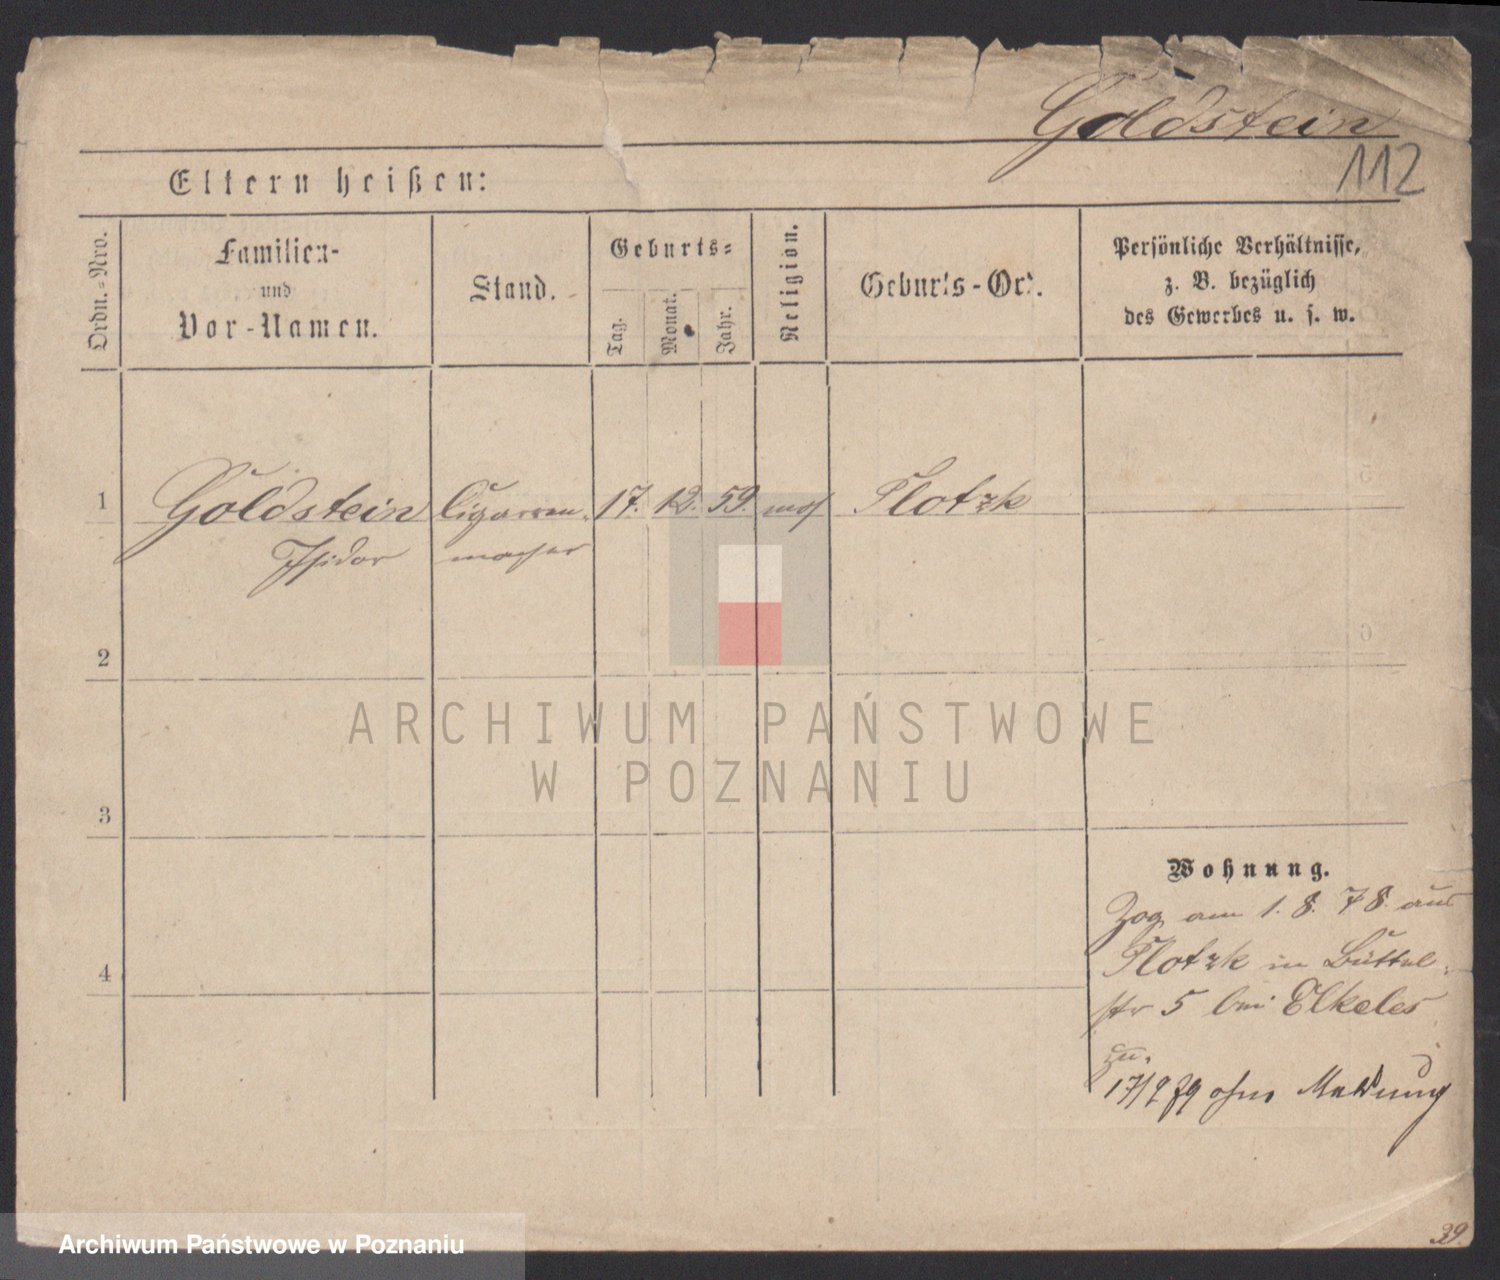 Goldstein
112
Eltern heißen:
Ordn.-Nro.
Familien-
und
Vor-Namen.
Stand.
Geburts-
Tag.
Monat.
Jahr.
Religion.
Geburts-Ort.
Persönliche Verhältnisse,
z. B. bezüglich
des Gewerbes u. s. w.
1 Goldstein Cigarren- 17. 12. 59. mos Plotzk
Isidor macher
2
ARCHIWUM PAŃSTWOWE
W POZNANIU
3
Wohnung.
Zog am 1. 8. 78. aus
Plotzk in Büttel-
4
str 5 bei Elkeles
zu.
17/9 79 ohne Meldung
Archiwum Państwowe w Poznaniu
39.